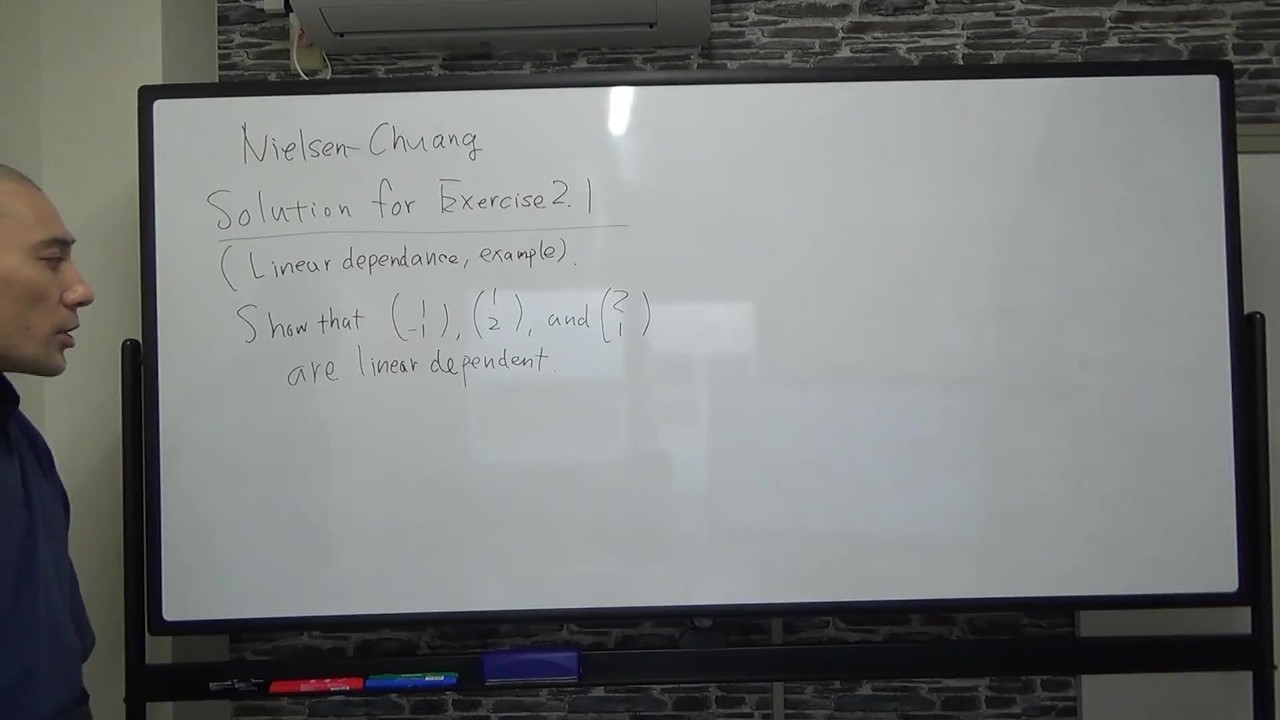 Nielsen-Chuang
Solution for Exercise 2.1
(Linear dependance, example).
Show that (1 -1), (1 2), and (2 1)
are linear dependent.